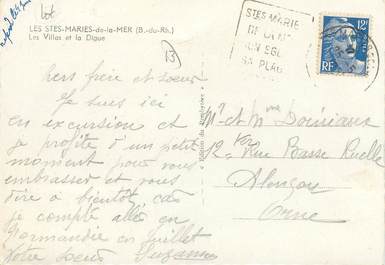 LES STES-MARIES-de-la-MER (B.-du-Rh.)
Les Villas et la Digue
B
STES MARIE
SON EGL
SA PLAG
12F
RF
chers frère et soeur
Je suis ici
en excursion et
je profite d'un petit
moment pour vous
embrasser et vous
dire à bientôt, car
je compte aller en
Normandie en juillet
Votre soeur Suzanne
Mr et Mme
12 Rue Basse Ruelle
Alençon
Orne